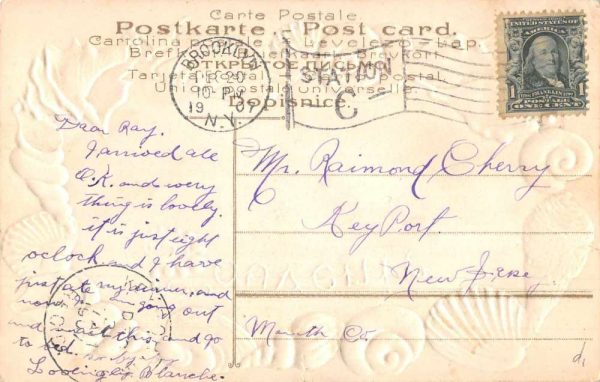 Carte Postale
Postkarte - Post card.
Cartolina postale - Levelező-Lap.
Brefkort - Briefkaart - Brevkort
ОТКРЫТОЕ ПИСЬМО
Tarjeta Postal
Union postale universelle.
Dopisnice.
BROOKLYN
20
1907
N.Y.
STATION
C
UNITED STATES OF AMERICA
FRANKLIN
POSTAGE
1 ONE CENT 1
Dear Ray.
I arrived ale
O.K. and every
thing is lovely.
it is just eight
oclock and I have
just ate my dinner, and
now Im going out
and mail this, and go
to bed. so by by
Lovingly Blanche.
Mr. Raimond Cherry
KeyPort.
New Jersey
Month Co.
d1